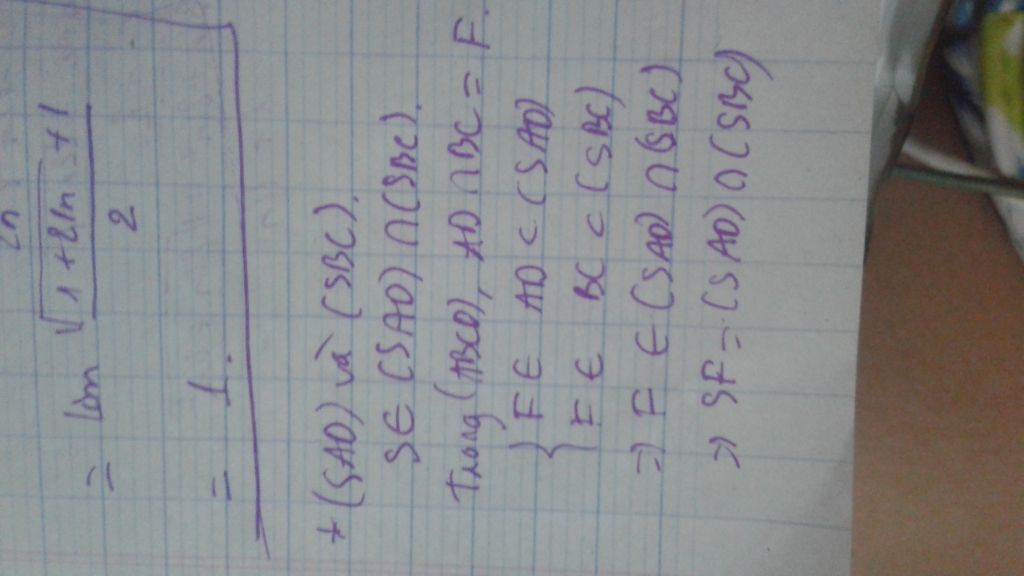 2n
= lim √1+2ln s+1 / 2
= 1.
+ (SAD) và (SBC).
S ∈ (SAD) ∩ (SBC).
Trong (ABCD), AD ∩ BC = F.
{ F ∈ AD ⊂ (SAD)
F ∈ BC ⊂ (SBC)
⇒ F ∈ (SAD) ∩ (SBC)
⇒ SF = (SAD) ∩ (SBC)